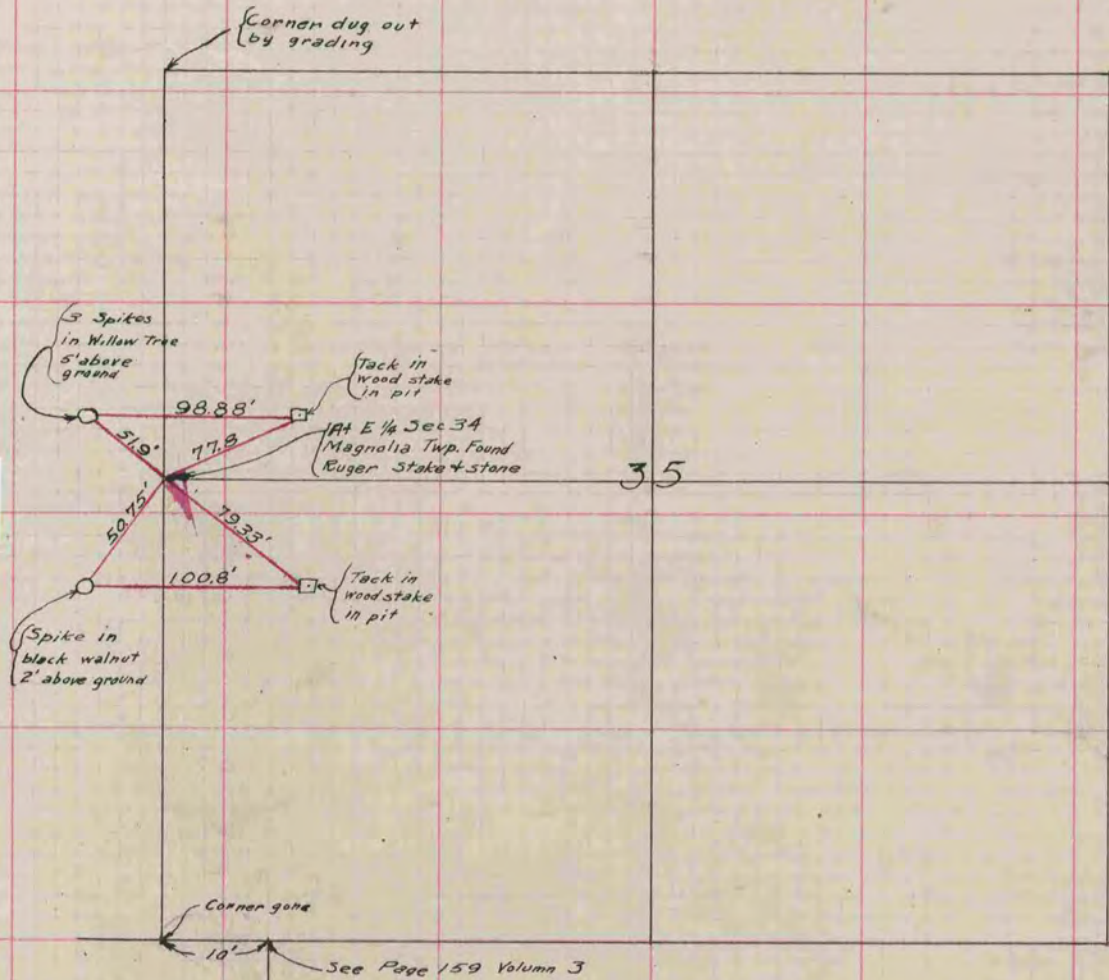 Corner dug out
by grading
3 Spikes
in Willow Tree
5' above
ground
Tack in
wood stake
in pit
98.88'
51.9'
77.8
At E 1/4 Sec 34
Magnolia Twp. Found
Ruger Stake + stone
35
50.75'
79.33'
100.8'
Tack in
wood stake
in pit
Spike in
black walnut
2' above ground
Corner gone
10'
See Page 159 Volumn 3